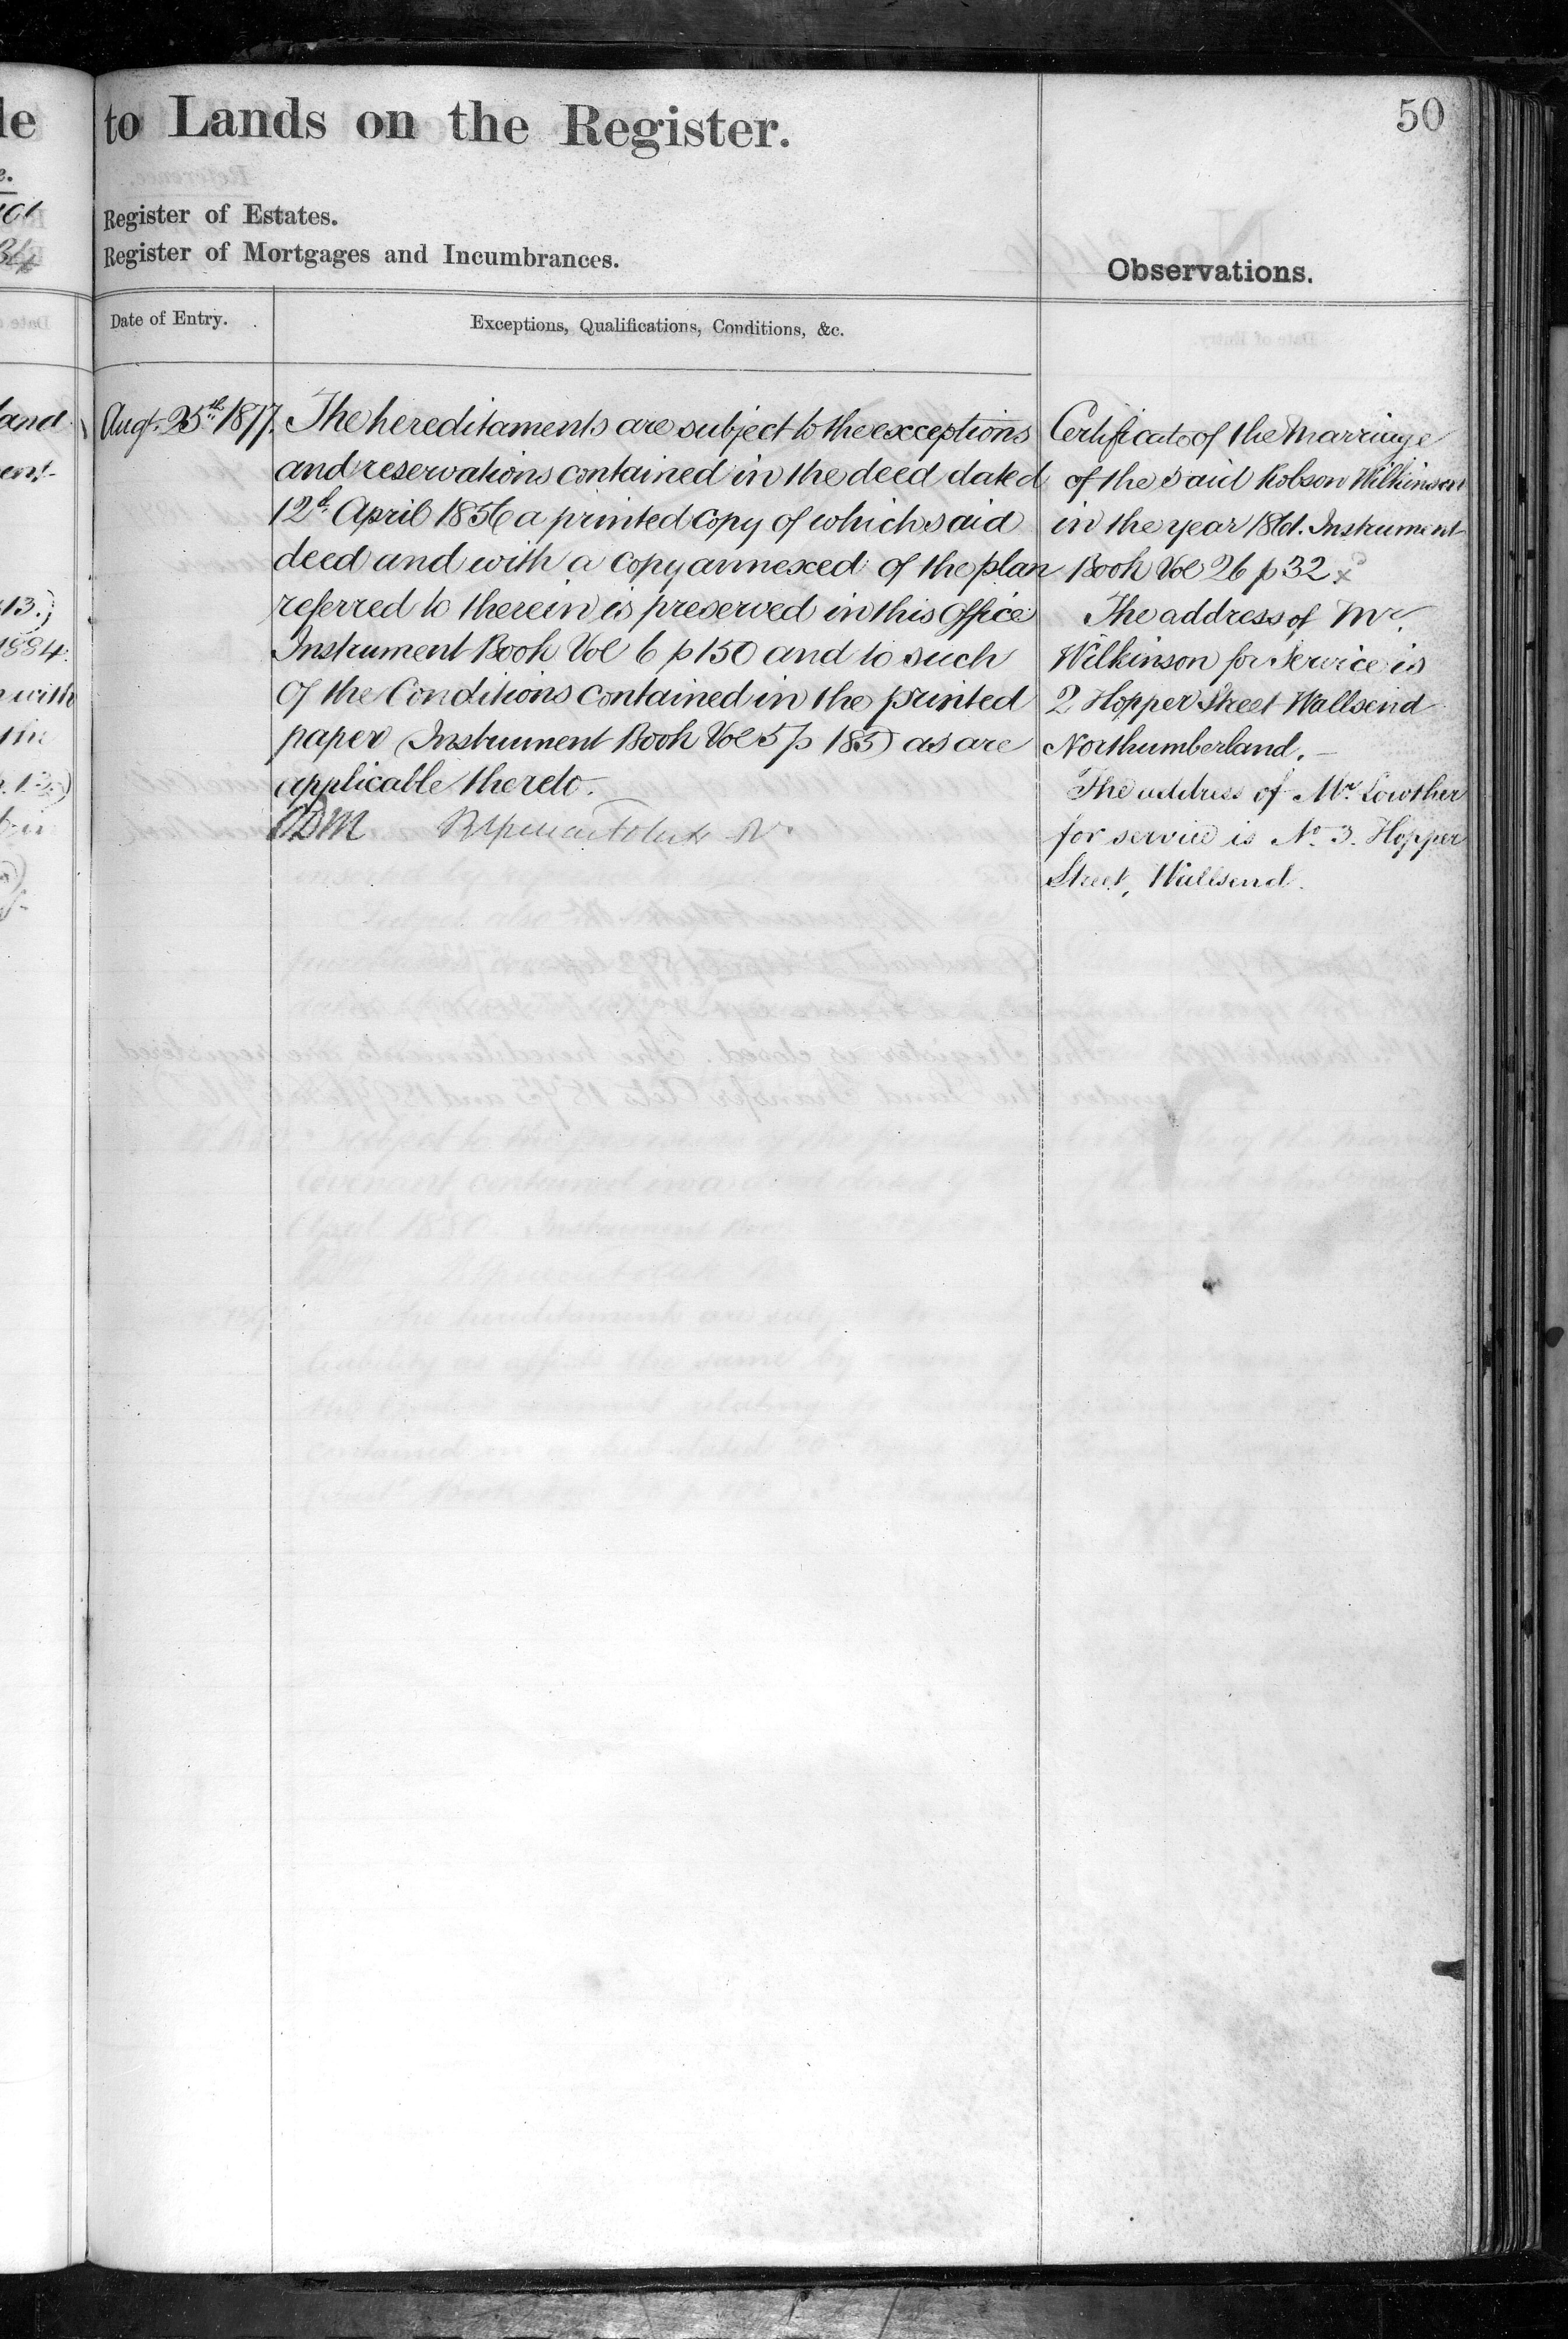 le
to Lands on the Register.
50
e.
Register of Estates.
Register of Mortgages and Incumbrances.
Observations.
Date of Entry.
Exceptions, Qualifications, Conditions, &c.
Augt. 25th 1877.
The hereditaments are subject to the exceptions
and reservations contained in the deed dated
12th April 1856 a printed copy of which said
deed and with a copy annexed of the plan
referred to therein is preserved in this Office
Instrument Book Vol 6 p 150 and to such
of the Conditions contained in the printed
paper (Instrument Book Vol 5 p 185) as are
applicable thereto.
Certificate of the Marriage
of the said Robson Wilkinson
in the year 1861. Instrument
Book Vol 26 p 32
The address of Mr.
Wilkinson for Service is
2 Hopper Street Wallsend
Northumberland.
The address of Mr. Lowther
for service is No. 3. Hopper
Street, Wallsend.
land
13.)
1884.
with